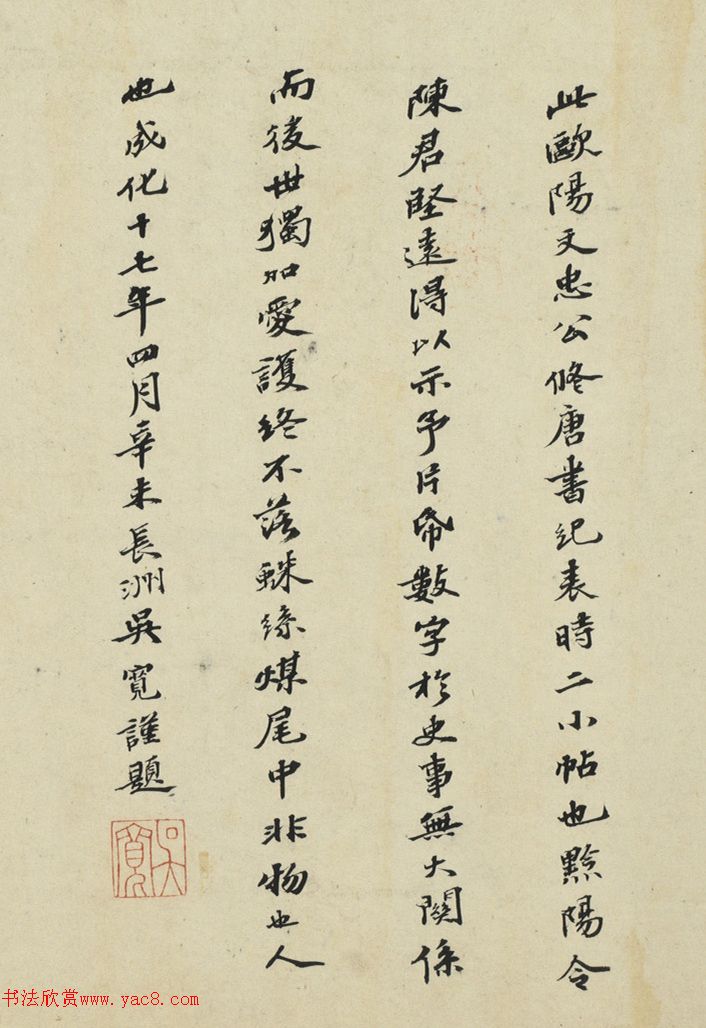 此歐陽文忠公修唐書紀表時二小帖也黟陽令
陳君堅遠得以示予片帋數字於史事無大關係
而後世獨加愛護終不落蛛絲煤尾中非物也人
也成化十七年四月辛未長洲吳寬謹題
吳寬
书法欣赏www.yac8.com